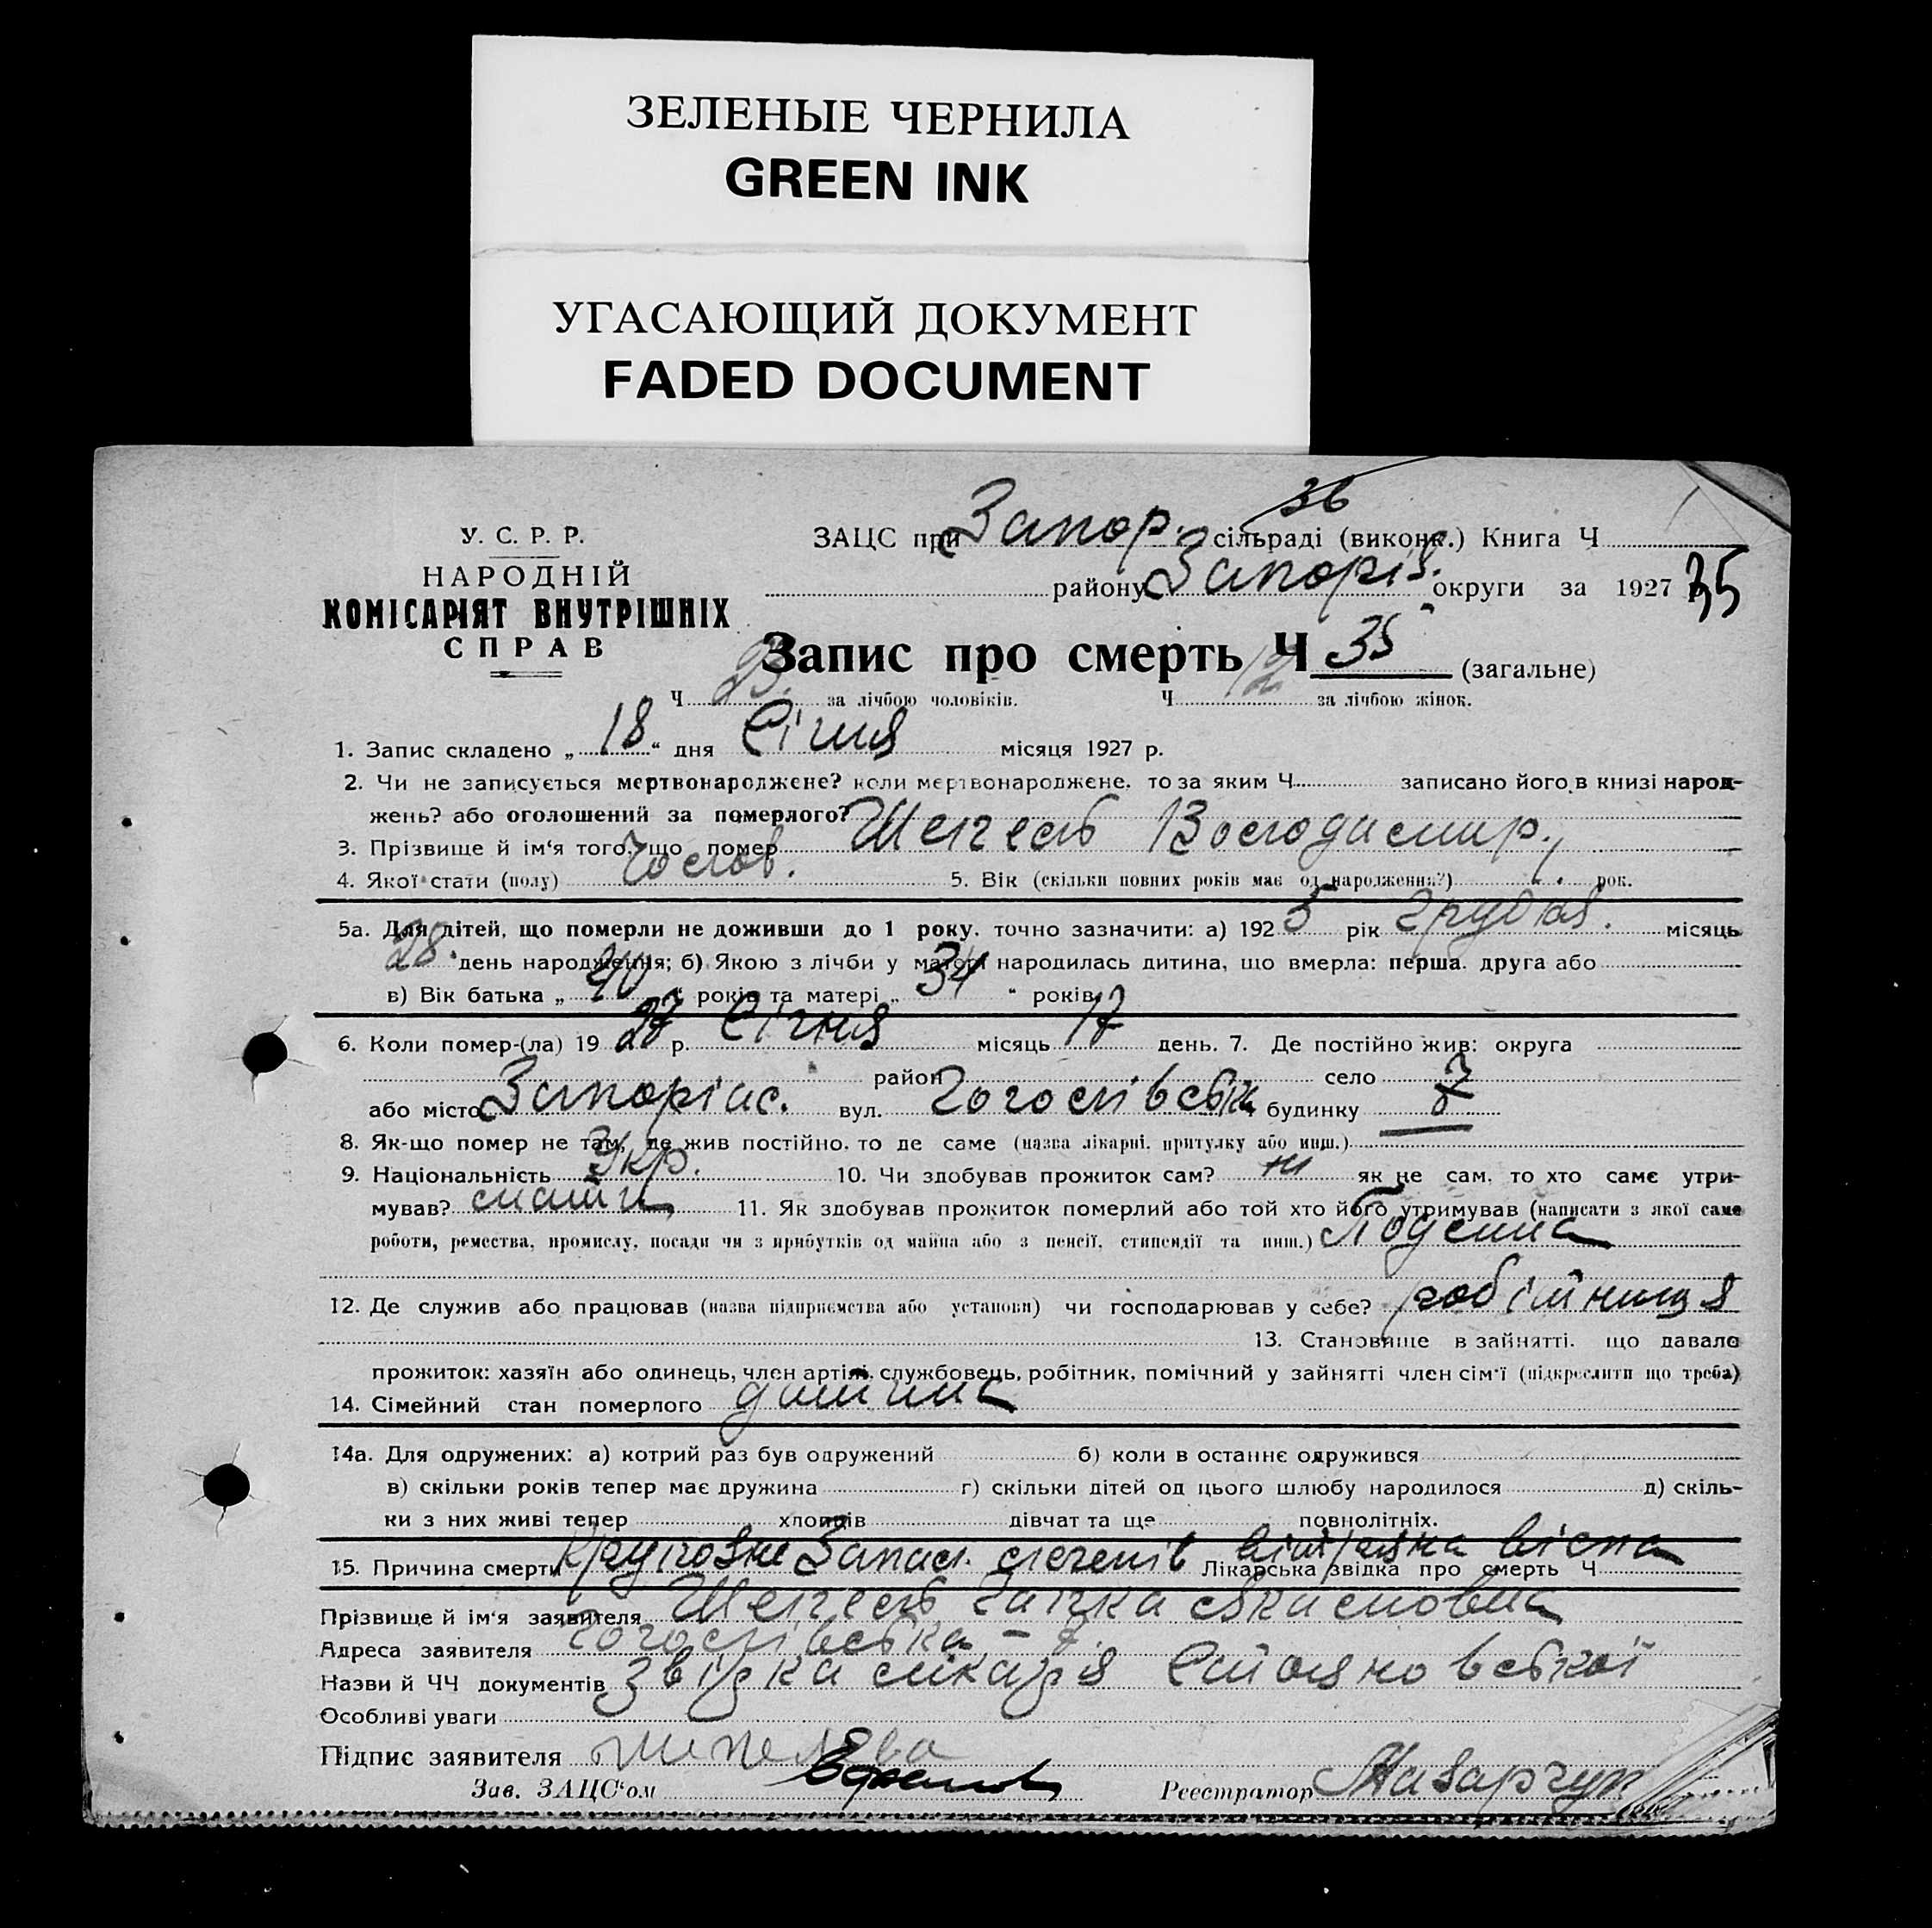 ЗЕЛЕНЫЕ ЧЕРНИЛА
GREEN INK
УГАСАЮЩИЙ ДОКУМЕНТ
FADED DOCUMENT
36
У. С. Р. Р.
НАРОДНІЙ
КОМІСАРІЯТ ВНУТРІШНІХ
СПРАВ
ЗАЦС при Запор. сільраді (виконк.) Книга Ч
району Запоріз. округи за 1927 35
Запис про смерть Ч 35 (загальне)
Ч 23. за лічбою чоловіків. Ч 12 за лічбою жінок.
1. Запис складено „ 18 “ дня Січня місяця 1927 р.
2. Чи не записується мертвонароджене? коли мертвонароджене, то за яким Ч записано його в книзі народ-
жень? або оголошений за померлого?
3. Прізвище й ім'я того, що помер Шепель Володимир
4. Якої стати (полу) Чолов. 5. Вік (скільки повних років має од народження?) рок.
5а. Для дітей, що померли не доживши до 1 року, точно зазначити: а) 192 рік Грудня. місяць
28. день народження; б) Якою з лічби у матері народилась дитина, що вмерла: перша, друга або
в) Вік батька „ 40 “ років та матері „ 34 “ років
6. Коли помер-(ла) 19 27 р. Січня місяць 17 день. 7. Де постійно жив: округа
район село
або місто вул. Гоголівська будинку 7
8. Як-що помер не там, де жив постійно, то де саме (назва лікарні, притулку або инш.)
9. Національність Укр. 10. Чи здобував прожиток сам? ні як не сам, то хто саме утри-
мував? мати 11. Як здобував прожиток померлий або той хто його утримував (написати з якої саме
роботи, ремества, промислу, посади чи з прибутків од майна або з пенсії, стипендії та инш.) Поденна
12. Де служив або працював (назва підприємства або установи) чи господарював у себе? робітниця
13. Становище в зайнятті, що давало
прожиток: хазяїн або одинець, член артілі, службовець, робітник, помічний у зайнятті член сім'ї (підкреслити що треба)
14. Сімейний стан померлого дитина
14а. Для одружених: а) котрий раз був одружений б) коли в останнє одружився
в) скільки років тепер має дружина г) скільки дітей од цього шлюбу народилося д) скіль-
ки з них живі тепер хлопців дівчат та ще повнолітніх.
15. Причина смерти Крупозне Запал. легенів вітряна віспа Лікарська звідка про смерть Ч
Прізвище й ім'я заявителя Шепель
Адреса заявителя Гоголівська - 7.
Назви й ЧЧ документів звідка лікаря
Особливі уваги
Підпис заявителя
Зав. ЗАЦС'ом Реєстратор Назарчук